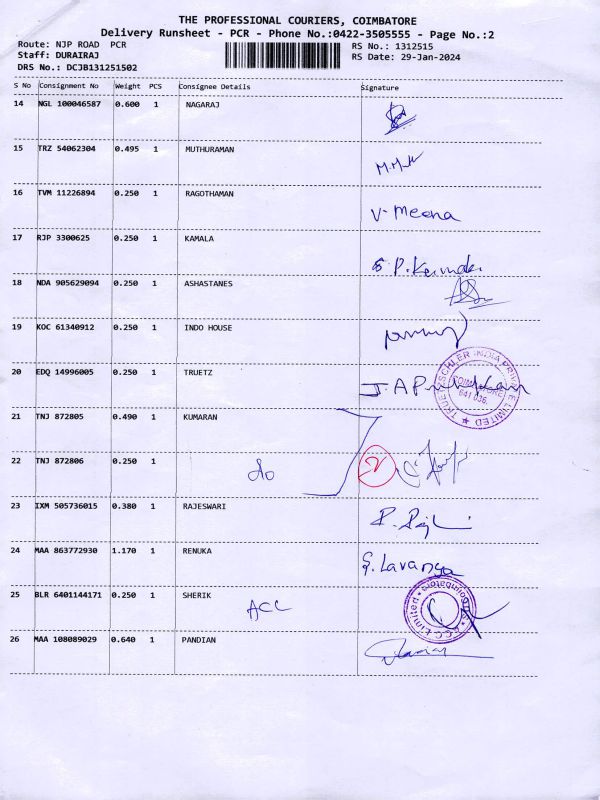 THE PROFESSIONAL COURIERS, COIMBATORE
Delivery Runsheet - PCR - Phone No.:0422-3505555 - Page No.:2
Route: NJP ROAD PCR RS No.: 1312515
Staff: DURAIRAJ RS Date: 29-Jan-2024
DRS No.: DCJB131251502
S No Consignment No Weight PCS Consignee Details Signature
14 NGL 100046587 0.600 1 NAGARAJ
15 TRZ 54062304 0.495 1 MUTHURAMAN
16 TVM 11226894 0.250 1 RAGOTHAMAN V- Meena
17 RJP 3300625 0.250 1 KAMALA
18 NDA 905629094 0.250 1 ASHASTANES
19 KOC 61340912 0.250 1 INDO HOUSE
20 EDQ 14996005 0.250 1 TRUETZ
TRUETZSCHLER INDIA PRIVATE LIMITED
COIMBATORE
641 036.
21 TNJ 872805 0.490 1 KUMARAN
22 TNJ 872806 0.250 1 do 2
23 IXM 505736015 0.380 1 RAJESWARI
24 MAA 863772930 1.170 1 RENUKA G. Lavanya
25 BLR 6401144171 0.250 1 SHERIK ACC
ACC Limited Coimbatore
26 MAA 108089029 0.640 1 PANDIAN